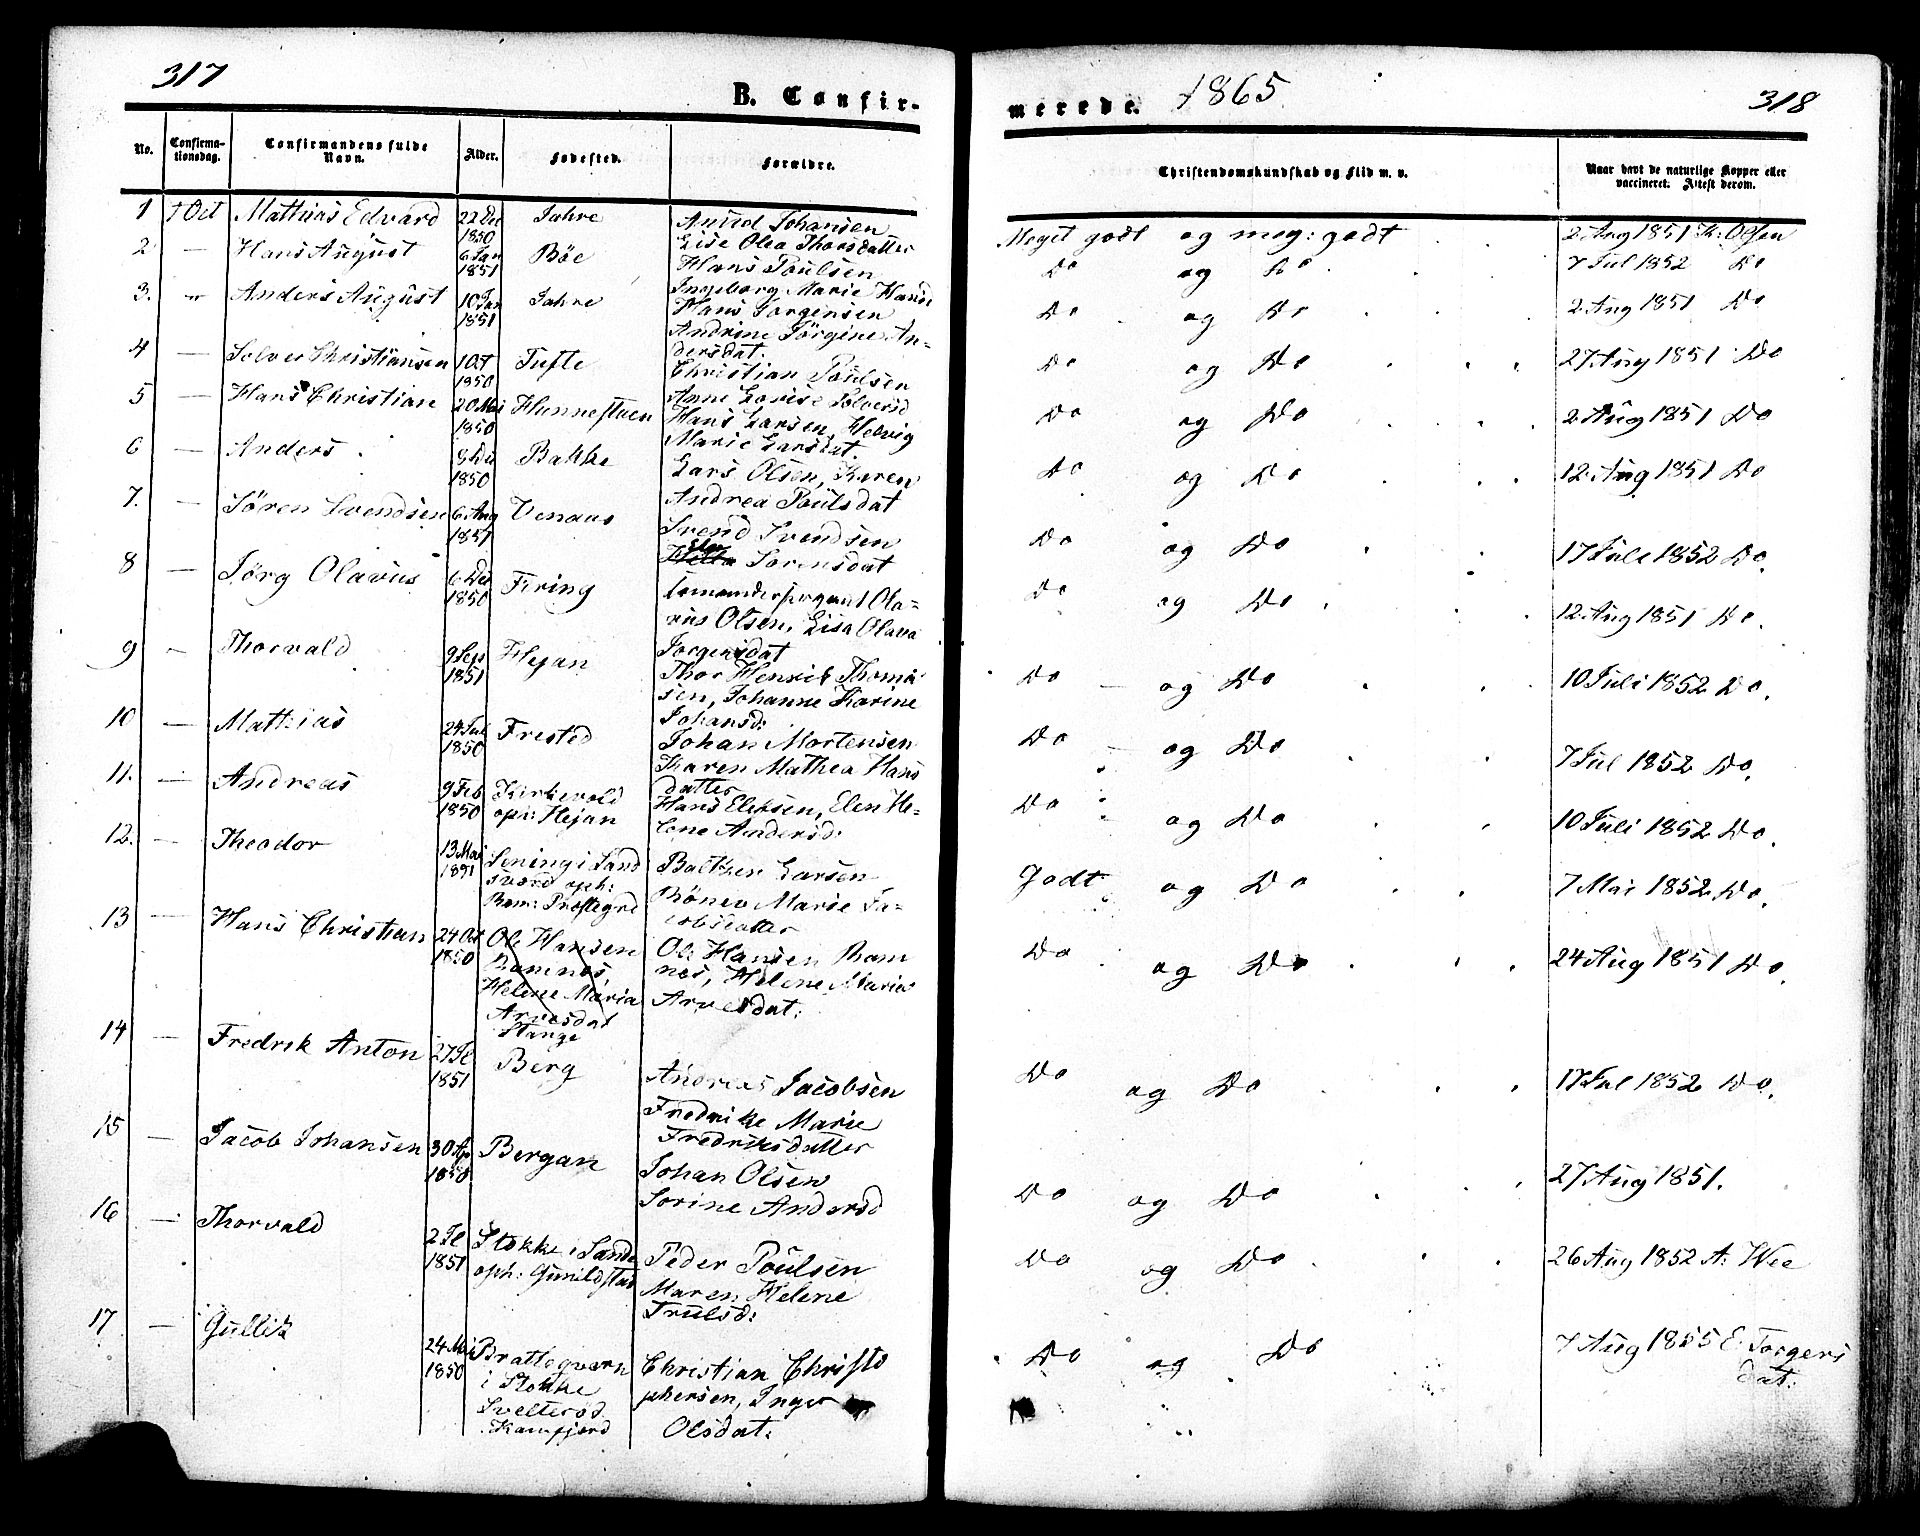 317
B. Confir-
No. Confirma-tionsdag. Confirmandens fulde Navn. Alder. Fødested. Forældre.
1 1 Oct Mathias Edvard 22 Dec 1850 Jahre Amund Johansen
Lise Olea Thorsdatter
2 — Hans August 6 Jan 1851 Bøe Hans Poulsen
Ingeborg Marie Hansd
3. " Anders August 10 Jan 1851 Jahre Hans Jørgensen
Andrine Jørgine An-
dersdat.
4 — Solver Christiansen 1 Oct 1850 Tufte Christian Poulsen
Anne Lovise Solversd
5 — Hans Christian 20 Mai 1850 Hunnestuen Hans Larsen, Helvig
Marie Larsdat.
6 — Anders 9 Dec 1850 Bakke Lars Olsen, Karen
Andrea Poulsdat
7. — Søren Svendsen 6 Aug 1851 Venaas Svend Svendsen
Sorensdat
8 — Jörg Olavus 6 Dec 1850 Firing Comandersergeant Ola-
vus Olsen, Lisa Olava
Jørgensdat
9 — Thorvald 9 Sep 1851 Hejan Thor Henrik Thoma
sen, Johanne Karine
Johansd:
10 — Mathias 24 Jul 1850 Frested Johan Mortensen
Karen Mathea Hans
datter
11. — Andreas 9 Feb 1850 Kirkevold
oph: Hejan Hans Ellefsen, Elen He-
lene Andersd:
12. — Theodor 13 Mai 1851 Sening i Sand
sværd oph:
Ram: Præstegrd Balthzer Larsen
Marie Ja-
cobsdatter
13 — Hans Christian 24 Oct 1850 Ole Hansen
Ramnes,
Helene Maria
Arvesdat
Stange Ole Hansen Ram
nes, Helene Maria
Arvesdat:
14 — Fredrik Anton 27 Fe 1851 Berg Andreas Jacobsen
Fredrikke Marie
Fredriksdatter
15 — Jacob Johansen 30 Ap 1850 Bergan Johan Olsen
Sorine Andersd
16 — Thorvald 2 Fe 1851 Stokke i Sande
oph: Gunildstad Peder Poulsen
Maren Helene
Trulsd:
17 — Gullik 24 Mai 1850 Bratteqværn
i Stokke
Ramfjord Christian Christo
phersen, Inger
Olsdat:
merede. 1865. 318
Christendomskundskab og Flid m. v. Naar havt de naturlige Kopper eller
vaccineret. Attest derom.
Meget godt og meg: godt 2 Aug 1851 K: Olsen
Do og Do 7 Jul 1852 Do
Do og Do 2 Aug 1851 Do
Do og Do 27 Aug 1851 Do
Do og Do 2 Aug 1851 Do
Do og Do 12 Aug 1851 Do
Do og Do 17 Juli 1852 Do.
Do og Do 12 Aug 1851 Do.
Do — og Do 10 Juli 1852 Do.
Do — og Do 7 Jul 1852 Do.
Do og Do 10 Juli 1852 Do.
Godt og Do 7 Mai 1852 Do.
Do og Do 24 Aug 1851 Do.
Do og Do 17 Jul 1852 Do.
Do og Do 27 Aug 1851.
Do og Do 26 Aug 1852 A: Wee
Do og Do 7 Aug 1855 E. Torgers
dat: